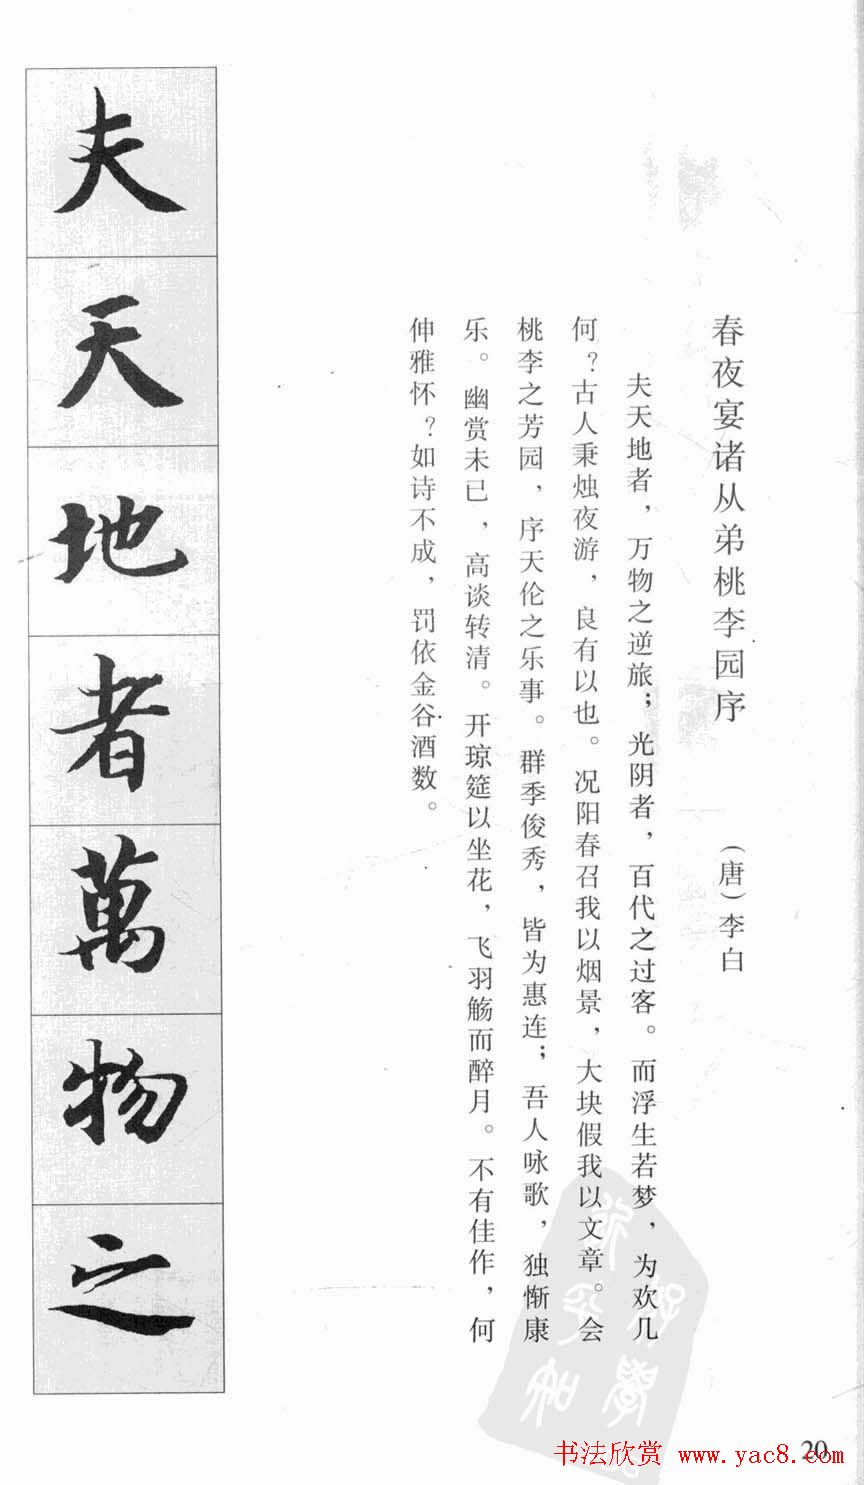 春夜宴诸从弟桃李园序
（唐）李白
夫天地者，万物之逆旅；光阴者，百代之过客。而浮生若梦，为欢几
何？古人秉烛夜游，良有以也。况阳春召我以烟景，大块假我以文章。会
桃李之芳园，序天伦之乐事。群季俊秀，皆为惠连；吾人咏歌，独惭康
乐。幽赏未已，高谈转清。开琼筵以坐花，飞羽觞而醉月。不有佳作，何
伸雅怀？如诗不成，罚依金谷酒数。
夫天地者萬物之
20
书法欣赏 www.yac8.com